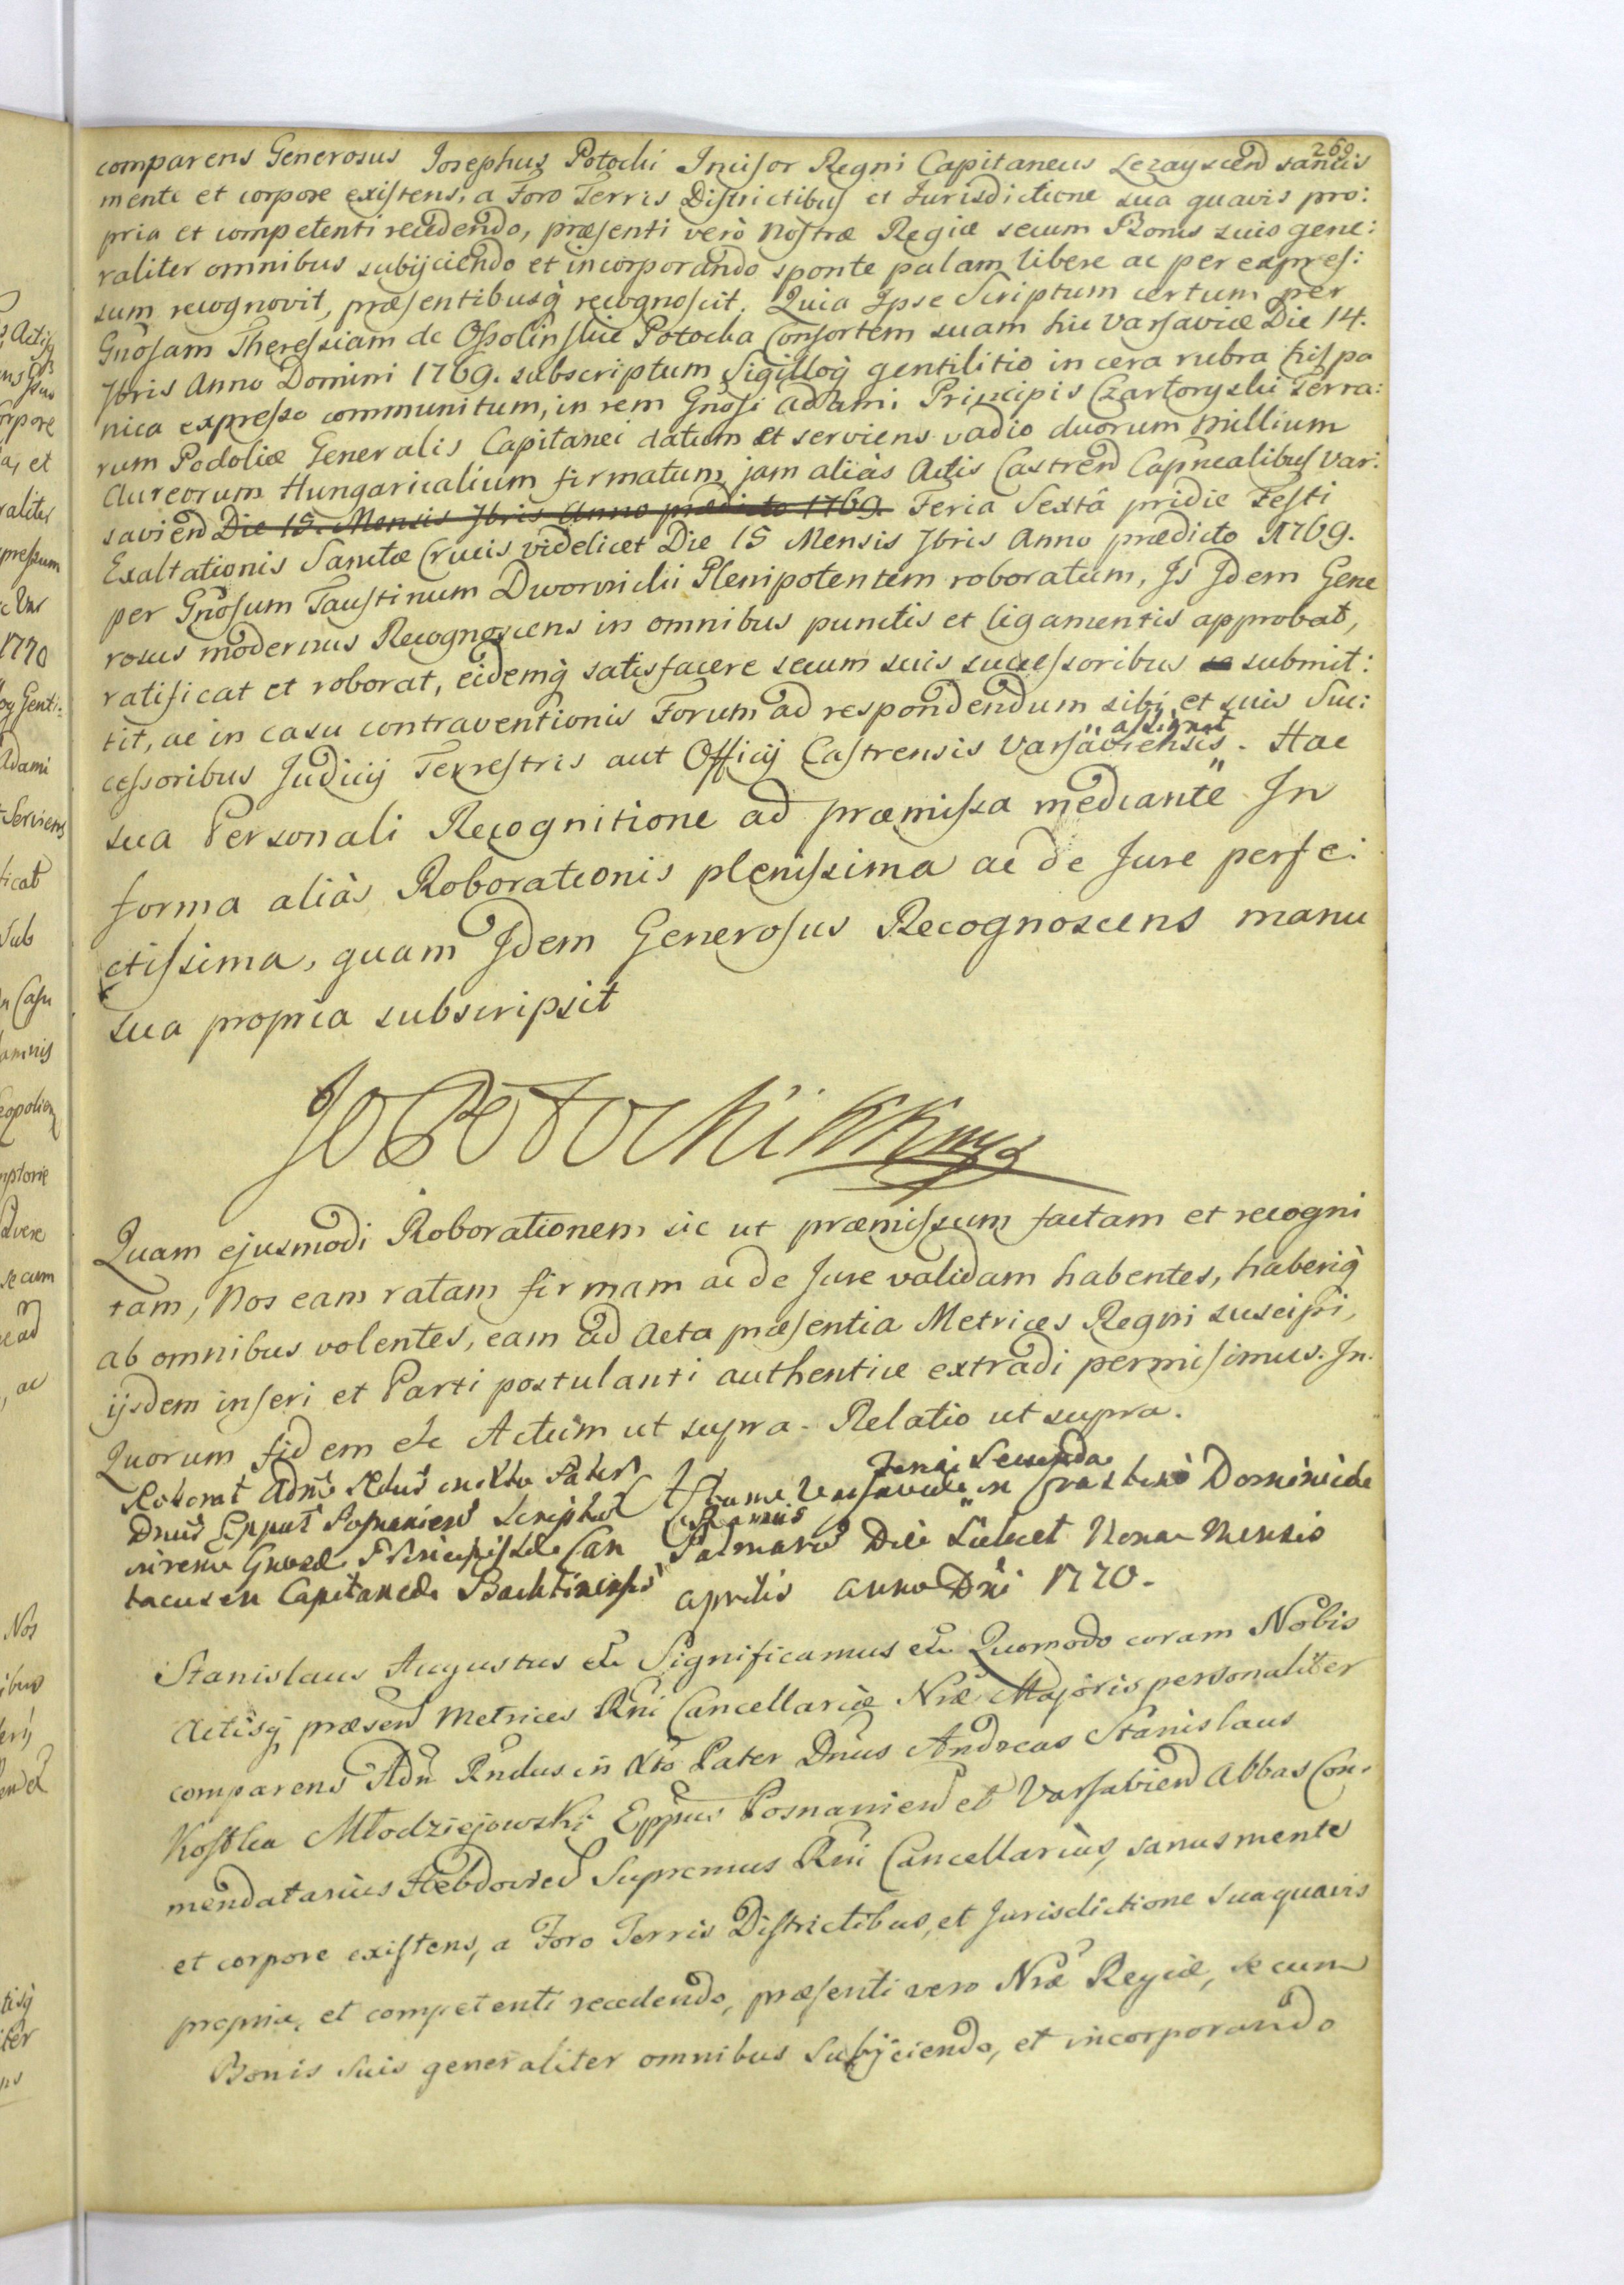 269.
comparens Generosus Josephus Potocki Incisor Regni Capitaneus Lezayscen̄ sanus
mente et corpore existens, a Foro Terris Districtibus et Jurisdictione sua quavis pro:
pria et competenti recedendo, præsenti verò Nostræ Regiæ secum Bonis suis gene:
raliter omnibus subijciendo et incorporando sponte palam libere ac per expres:
sum recognovit, præsentibusq̀ recognoscit. Quia Ipse Scriptum certum per
Gnōsam Theressiam de Ossolinskie Potocka Consortem suam hic Varsaviæ Die 14.
7bris Anno Domini 1769. subscriptum Sigilloq̀ gentilitio in cera rubra hispa
nica expresso communitum, in rem Gnōsi Adami Principis Czartoryski Terra:
rum Podoliæ Generalis Capitanei datum et serviens vadio duorum millium
Aureorum Hungaricalium firmatum, jam aliàs Actis Castren̄ Capnealibus Var:
savien̄ Die 15. Mensis 7bris Anno prædicto 1769. Feria Sextâ pridie Festi
Exaltationis Sanctæ Crucis videlicet Die 15 Mensis 7bris Anno prædicto 1769.
per Gnōsum Faustinum Dwornicki Plenipotentem roboratum, Is Idem Gene
rosus modernus Recognoscens in omnibus punctis et ligamentis approbat,
ratificat et roborat, eidemq̀ satisfacere secum suis successoribus se submit:
tit, ac in casu contraventionis Forum ad respondendum sibi et suis Suc:
cessoribus Judicij Terrestris aut Officij Castrensis Varsaviensis assignat. Hac
sua Personali Recognitione ad præmissa mediante In
forma aliàs Roborationis plenissima ac de Jure perfe:
ctissima, quam Idem Generosus Recognoscens manu
sua propria subscripsit
Jo Potocki KK mp
Quam ejusmodi Roborationem sic ut præmissum factam et recogni
tam, Nos eam ratam firmam ac de Jure validam habentes, haberiq̀
ab omnibus volentes, eam ad Acta præsentia Metrices Regni suscipi,
ijsdem inseri et Parti postulanti authentice extradi permisimus. In
Quorum fidem etc Actum ut supra. Relatio ut supra.
Roborat Adm̄ Rdus in Xto Pater
Dnūs Eppus Posnanien̄ Scriptum
in rem Gnosæ Principissæ San
Capitaneæ
Actum Varsaviæ Feria Secunda in Crastino Dominicæ
Ramis Palmarum Die Scilicet Nona Mensis
Aprilis Anno Dni 1770.
Stanislaus Augustus etc Significamus etc Quomodo coram Nobis
Actisq̀ præsen̄ Metrices Rni Cancellariæ Nræ Majoris personaliter
comparens Adm̄ Rndus in Xto Pater Dnūs Andreas Stanislaus
Kostka Młodziejowski Eppus Posnanien̄ et Varsavien̄ Abbas Com.
mendatarius Hebdovien̄ Supremus Rni Cancellarius, sanus mente
et corpore existens, a Foro Terris Districtibus, et Jurisdictione sua quavis
propria, et competenti recedendo, præsenti vero Nræ Regiæ, se cum
Bonis suis generaliter omnibus subijciendo, et incorporando